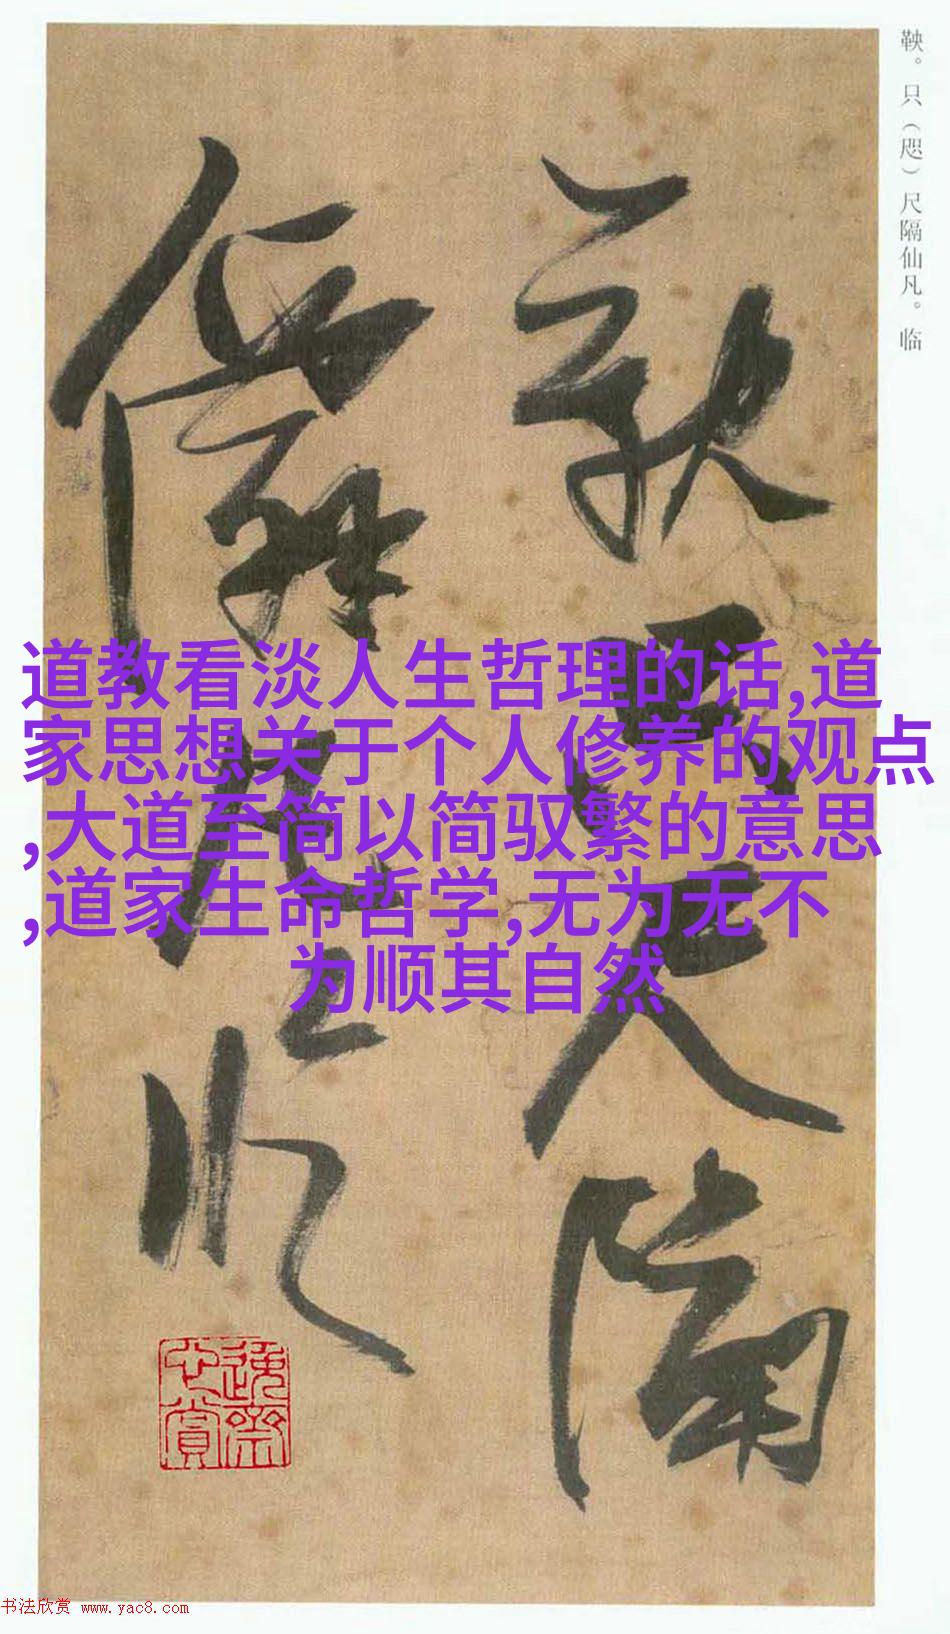 鞅。只（咫）尺隔仙凡。临
歎只尺隔
僊凡临顺
道教看淡人生哲理的话,道
家思想关于个人修养的观点
,大道至简以简驭繁的意思
,道家生命哲学,无为无不
为顺其自然
书法欣赏 www.yac8.com